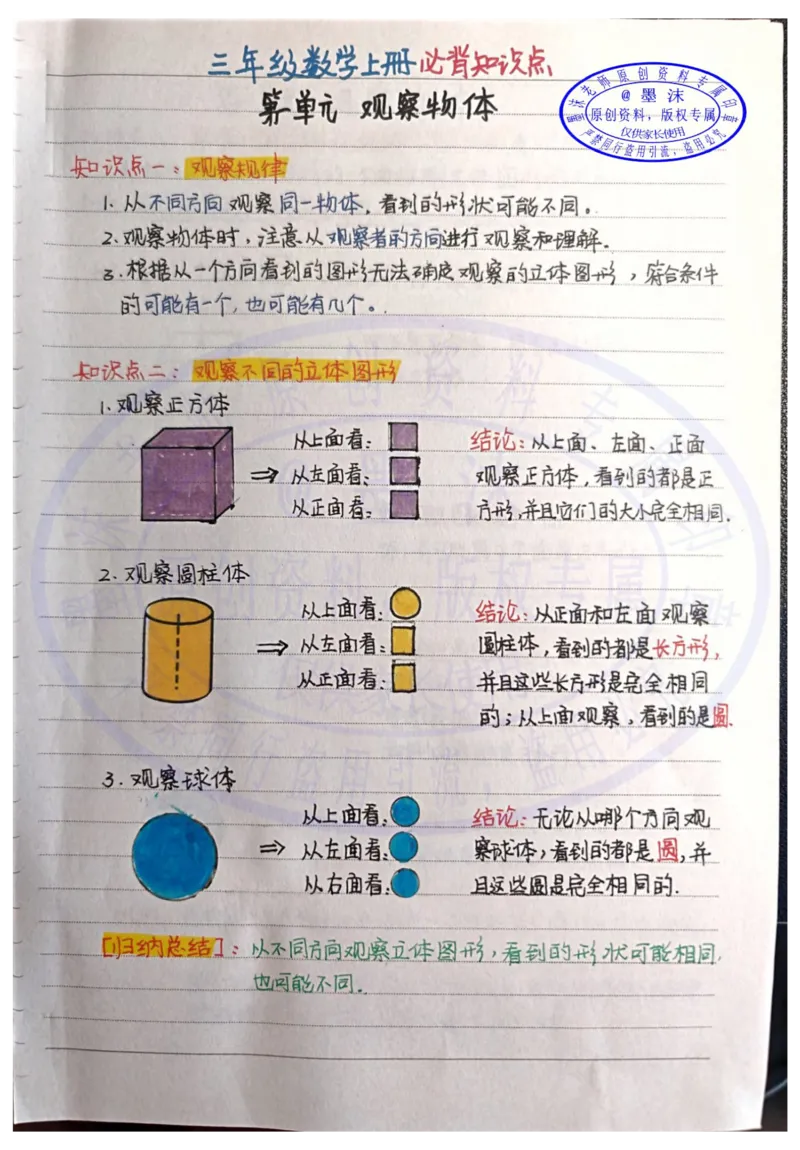 三年级数学上册必背知识点
第一单元 观察物体
墨沫老师原创资料专属印章
@墨沫
原创资料，版权专属
仅供家长使用
严禁同行盗用引流，盗用必究
知识点一：观察规律
1. 从不同方向观察同一物体，看到的形状可能不同。
2. 观察物体时，注意从观察者的方向进行观察和理解。
3. 根据从一个方向看到的图形无法确定观察的立体图形，符合条件
的可能有一个，也可能有几个。
知识点二：观察不同的立体图形
1. 观察正方体
从上面看：
从左面看：
从正面看：
结论：从上面、左面、正面
观察正方体，看到的都是正
方形，并且它们的大小完全相同.
2. 观察圆柱体
从上面看：
从左面看：
从正面看：
结论：从正面和左面观察
圆柱体，看到的都是长方形，
并且这些长方形是完全相同
的；从上面观察，看到的是圆.
3. 观察球体
从上面看：
从左面看：
从右面看：
结论：无论从哪个方向观
察球体，看到的都是圆，并
且这些圆是完全相同的.
[归纳总结]：从不同方向观察立体图形，看到的形状可能相同，
也可能不同。